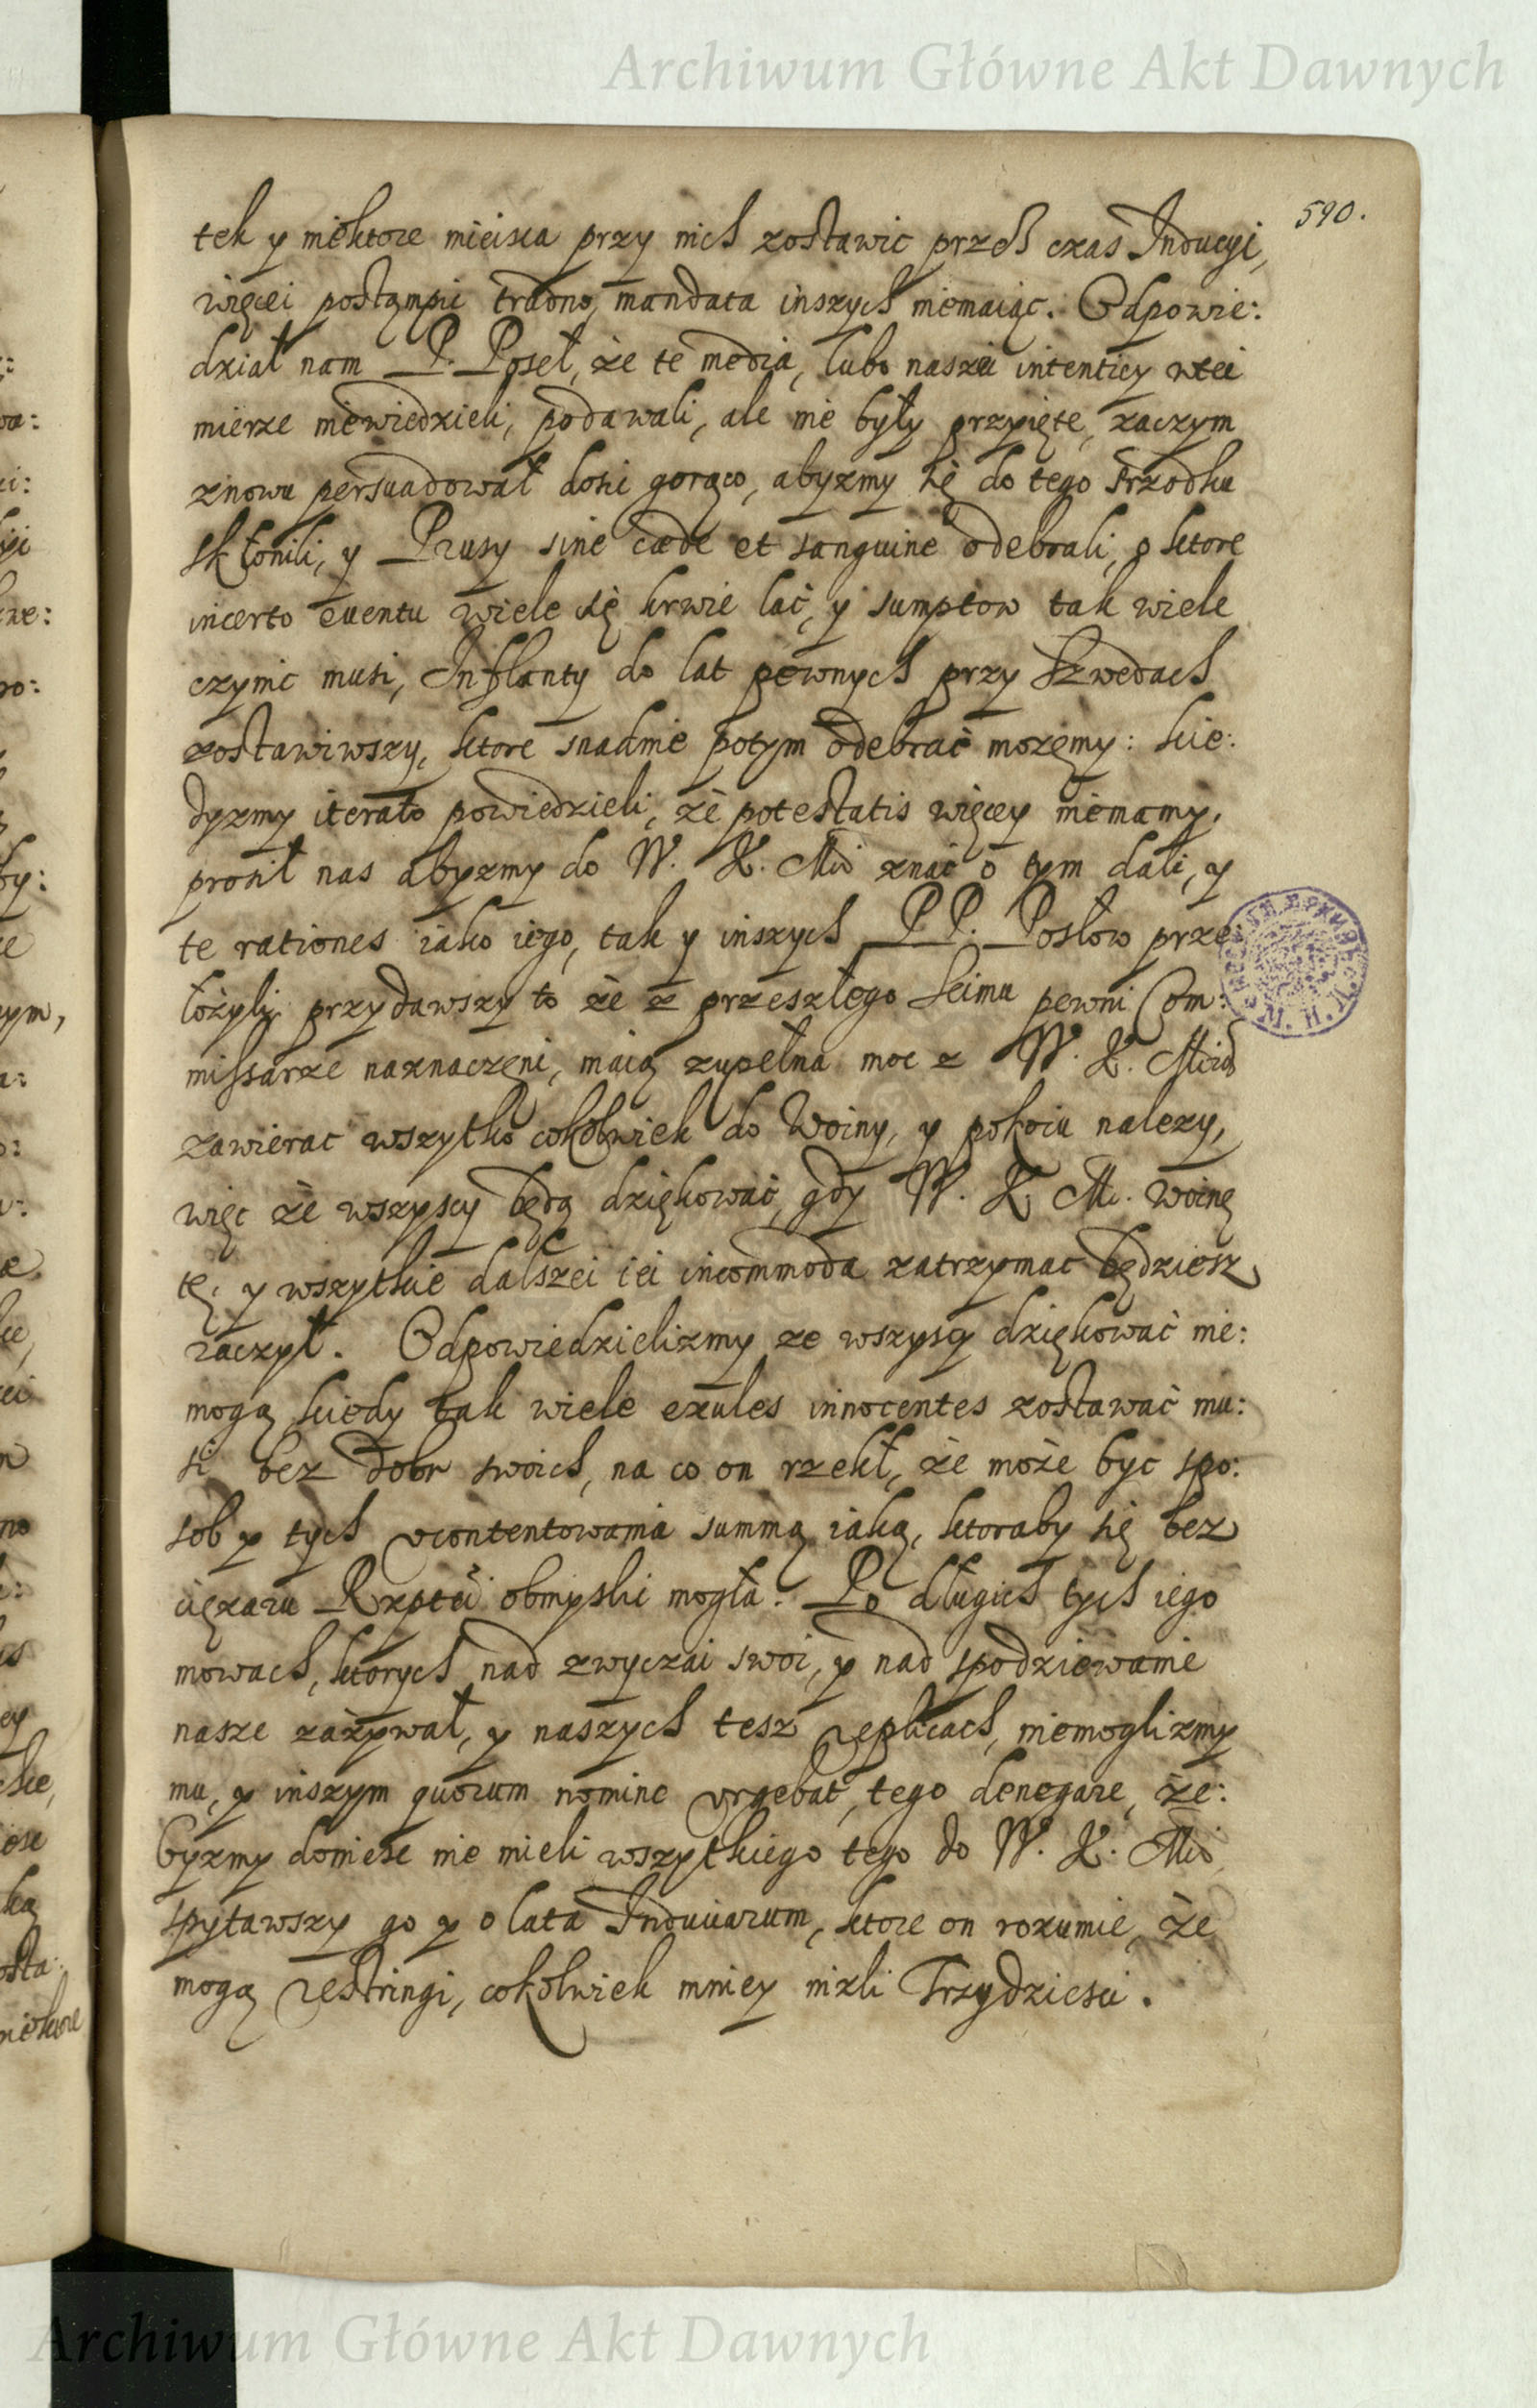 Archiwum Główne Akt Dawnych
590.
tek y niektore mieisca przy nich zostawic przes czas Inducyi,
więcei postąmpic tradno, mandata inszych niemaiąc. Odpowie:
dział nam P. Poseł, że te media, lubo naszei intenticy wtei
mierze niewiedzieli, podawali, ale nie były przyięte, zaczym
znowu persuadował dosic gorąco, abyzmy się do tego srzodku
skłonili, y Prusy sine cæde et sanguine odebrali, o ktore
incerto euentu wiele się krwie lać, y sumptow tak wiele
czynic musi, Inflanty do lat pewnych przy Szwedach
zostawiwszy, ktore snadnie potym odebrać możemy: kie:
dyzmy iterato powiedzieli, że potestatis więcey niemamy,
prosił nas abyzmy do W. K. Mci znać o tym dali, y
te rationes iako iego, tak y inszych PP. Posłow prze:
łożyli, przydawszy to że z przeszłego Seimu pewni Com:
missarze naznaczeni, maią zupełna moc z W. K. Mcią
zawierac wszytko cokolwiek do Woiny, y pokoiu nalezy,
więc że wszyscy będą dziękować, gdy W. K. M. woinę
tę, y wszytkie dalszei iei incommoda zatrzymac będziesz
raczył. Odpowiedzielizmy ze wszyscy dziękować nie:
mogą kiedy tak wiele exules innocentes zostawać mu:
si bez dobr swoich, na co on rzekł, że może byc spo:
sob y tych ucontentowania summą iaką, ktoraby się bez
ciężaru Rzptei obmyslic mogła. Po długich tych iego
mowach, ktorych nad zwyczai swoi, y nad spodziewanie
nasze zażywał, y naszych tesz replicach, niemoglizmy
mu, y inszym quorum nomine urgebat, tego denegare, że:
byzmy doniesc nie mieli wszytkiego tego do W. K. Mci
spytawszy go y o lata Induciarum, ktore on rozumie, że
mogą restringi, cokolwiek mniey nizli Trzydziesci.
Archiwum Główne Akt Dawnych